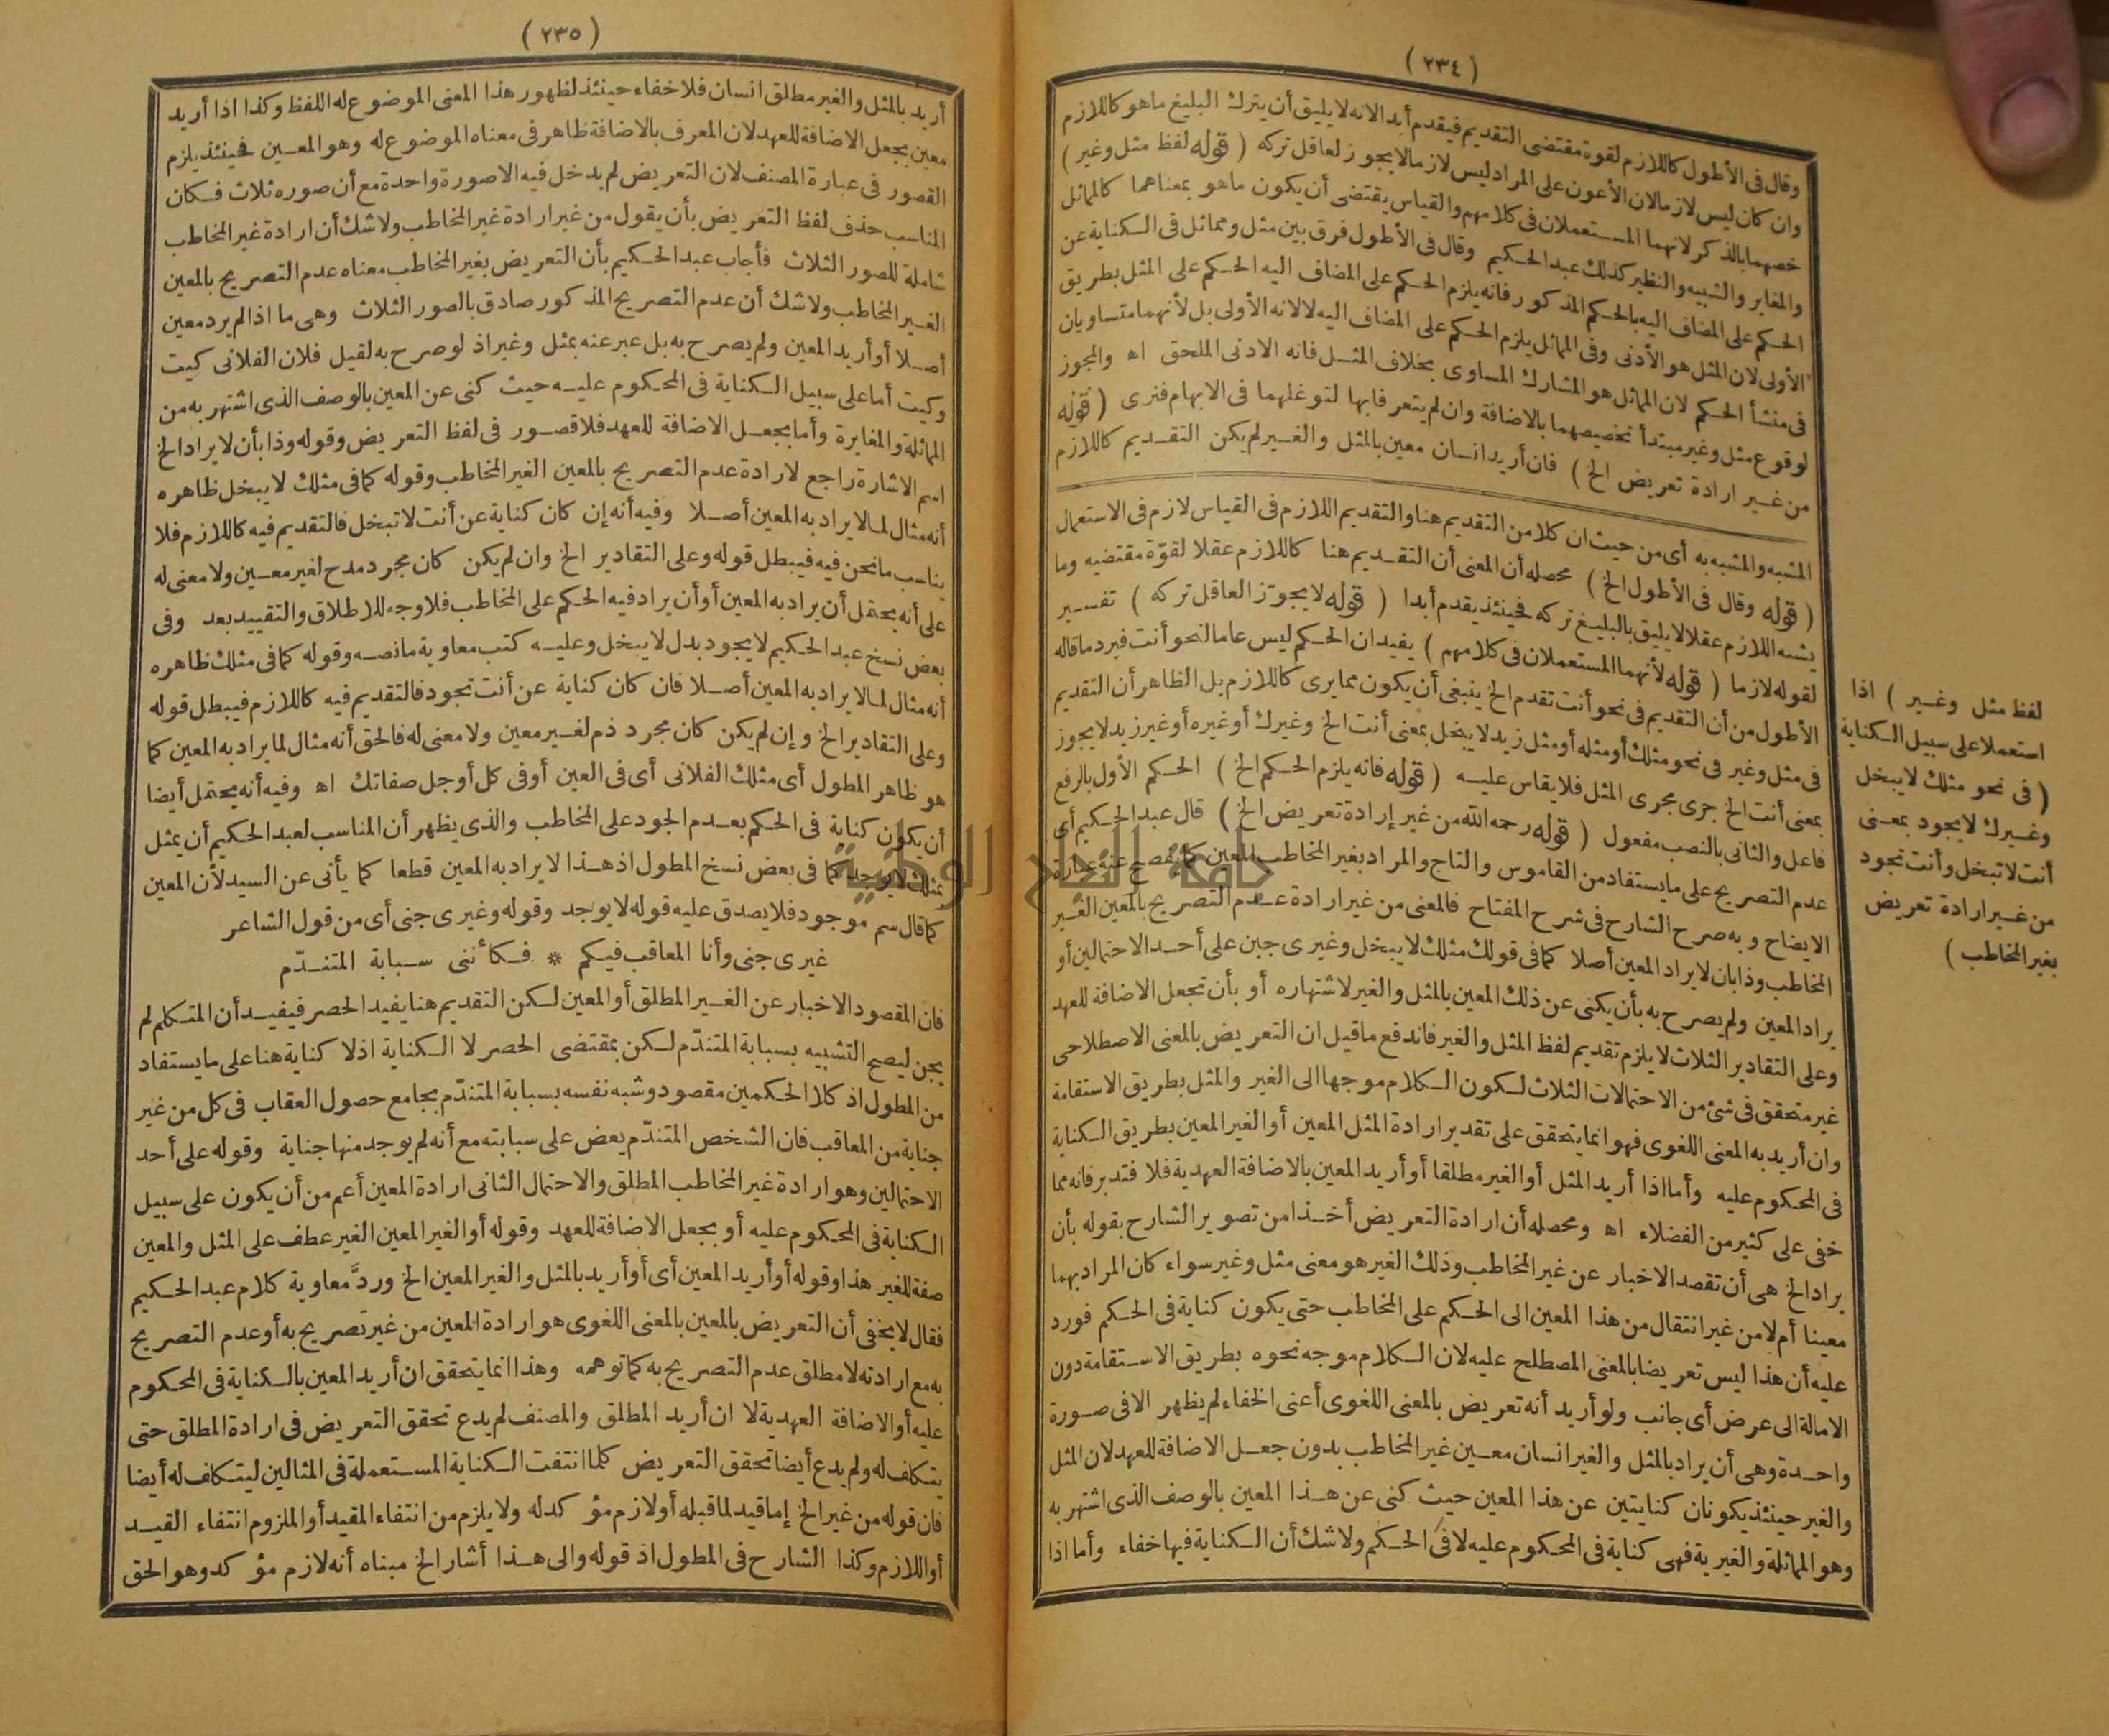 ( ٢٣٤ )
وقال فى الأطول كاللازم لقوة مقتضى التقديم فيقدم أبدا لانه لا يليق أن يترك البليغ ما هو كاللازم
وان كان ليس لازما لان الأعون على المراد ليس لازما لا يجوز لعاقل تركه ( قوله لفظ مثل وغير )
خصهما بالذكر لانهما المستعملان فى كلامهم والقياس يقتضى أن يكون ما هو بمعناهما كالمماثل
والمغاير والشبيه والنظير كذلك عبد الحكيم وقال فى الأطول فرق بين مثل ومماثل فى الكناية عن
الحكم على المضاف اليه بالحكم المذكور فانه يلزم الحكم على المضاف اليه الحكم على المثل بطريق
الأولى لان المثل هو الأدنى وفى المماثل يلزم الحكم على المضاف اليه لا لانه الأولى بل لأنهما متساويان
فى منشأ الحكم لان المماثل هو المشارك المساوى بخلاف المثل فانه الادنى الملحق اه والمجوز
لوقوع مثل وغير مبتدأ تخصيصهما بالاضافة وان لم يتعرفا بها لتوغلهما فى الابهام فنرى ( قوله
من غير ارادة تعريض الخ ) فان أريد انسان معين بالمثل والغير لم يكن التقديم كاللازم
المشبه والمشبه به أى من حيث ان كلا من التقديم هنا والتقديم اللازم فى القياس لازم فى الاستعمال
( قوله وقال فى الأطول الخ ) محصله أن المعنى أن التقديم هنا كاللازم عقلا لقوة مقتضيه وما
يشبه اللازم عقلا لا يليق بالبليغ تركه فحينئذ يقدم أبدا ( قوله لا يجوز العاقل تركه ) تفسير
لقوله لازما ( قوله لأنهما المستعملان فى كلامهم ) يفيد ان الحكم ليس عاما لنحو أنت فيرد ما قاله
الأطول من أن التقديم فى نحو أنت تقدم الخ ينبغى أن يكون مما يرى كاللازم بل الظاهر أن التقديم
فى مثل وغير فى نحو مثلك أو مثله أو مثل زيد لا يبخل بمعنى أنت الخ وغيرك أو غيره أو غير زيد لا يجوز
بمعنى أنت الخ جرى مجرى المثل فلا يقاس عليه ( قوله فانه يلزم الحكم الخ ) الحكم الأول بالرفع
فاعل والثانى بالنصب مفعول ( قوله رحمه الله من غير إرادة تعريض الخ ) قال عبد الحكيم أى
عدم التصريح على ما يستفاد من القاموس والتاج والمراد بغير المخاطب المعين كما يفصح عنه عبارة
الايضاح وبه صرح الشارح فى شرح المفتاح فالمعنى من غير ارادة عدم التصريح بالمعين الغير
المخاطب وذا بان لا يراد المعين أصلا كما فى قولك مثلك لا يبخل وغيرى جبن على أحد الاحتمالين أو
يراد المعين ولم يصرح به بأن يكنى عن ذلك المعين بالمثل والغير لاشتهاره أو بأن تجعل الاضافة للعهد
وعلى التقادير الثلاث لا يلزم تقديم لفظ المثل والغير فاندفع ما قيل ان التعريض بالمعنى الاصطلاحى
غير متحقق فى شئ من الاحتمالات الثلاث لكون الكلام موجها الى الغير والمثل بطريق الاستقامة
وان أريد به المعنى اللغوى فهو انما يتحقق على تقدير ارادة المثل المعين أو الغير المعين بطريق الكناية
فى المحكوم عليه وأما اذا أريد المثل أو الغير مطلقا أو أريد المعين بالاضافة العهدية فلا فتدبر فانه مما
خفى على كثير من الفضلاء اه ومحصله أن ارادة التعريض أخذا من تصوير الشارح بقوله بأن
يراد الخ هى أن تقصد الاخبار عن غير المخاطب وذلك الغير هو معنى مثل وغير سواء كان المراد بهما
معينا أم لا من غير انتقال من هذا المعين الى الحكم على المخاطب حتى يكون كناية فى الحكم فورد
عليه أن هذا ليس تعريضا بالمعنى المصطلح عليه لان الكلام موجه نحوه بطريق الاستقامة دون
الامالة الى عرض أى جانب ولو أريد أنه تعريض بالمعنى اللغوى أعنى الخفاء لم يظهر الا فى صورة
واحدة وهى أن يراد بالمثل والغير انسان معين غير المخاطب بدون جعل الاضافة للعهد لان المثل
والغير حينئذ يكونان كنايتين عن هذا المعين حيث كنى عن هذا المعين بالوصف الذى اشتهر به
وهو المماثلة والغيرية فهى كناية فى المحكوم عليه لا فى الحكم ولا شك أن الكناية فيها خفاء وأما اذا
لفظ مثل وغير ) اذا
استعملا على سبيل الكناية
( فى نحو مثلك لا يبخل
وغيرك لا يجود بمعنى
أنت لا تبخل وأنت تجود
من غير ارادة تعريض
بغير المخاطب )
( ٢٣٥ )
أريد بالمثل والغير مطلق انسان فلا خفاء حينئذ لظهور هذا المعنى الموضوع له اللفظ وكذا اذا أريد
معين بجعل الاضافة للعهد لان المعرف بالاضافة ظاهر فى معناه الموضوع له وهو المعين فحينئذ يلزم
القصور فى عبارة المصنف لان التعريض لم يدخل فيه الا صورة واحدة مع أن صوره ثلاث فكان
المناسب حذف لفظ التعريض بأن يقول من غير ارادة غير المخاطب ولا شك أن ارادة غير المخاطب
شاملة للصور الثلاث فأجاب عبد الحكيم بأن التعريض بغير المخاطب معناه عدم التصريح بالمعين
الغير المخاطب ولا شك أن عدم التصريح المذكور صادق بالصور الثلاث وهى ما اذا لم يرد معين
أصلا أو أريد المعين ولم يصرح به بل عبر عنه بمثل وغير اذ لو صرح به لقيل فلان الفلانى كيت
وكيت أما على سبيل الكناية فى المحكوم عليه حيث كنى عن المعين بالوصف الذى اشتهر به من
المماثلة والمغايرة وأما بجعل الاضافة للعهد فلا قصور فى لفظ التعريض وقوله وذا بأن لا يراد الخ
اسم الاشارة راجع لارادة عدم التصريح بالمعين الغير المخاطب وقوله كما فى مثلك لا يبخل ظاهره
أنه مثال لما لا يراد به المعين أصلا وفيه أنه إن كان كناية عن أنت لا تبخل فالتقديم فيه كاللازم فلا
يناسب ما نحن فيه فيبطل قوله وعلى التقادير الخ وان لم يكن كان مجرد مدح لغير معين ولا معنى له
على أنه يحتمل أن يراد به المعين أو أن يراد فيه الحكم على المخاطب فلا وجه للاطلاق والتقييد بعد وفى
بعض نسخ عبد الحكيم لا يجود بدل لا يبخل وعليه كتب معاوية ما نصه وقوله كما فى مثلك ظاهره
أنه مثال لما لا يراد به المعين أصلا فان كان كناية عن أنت تجود فالتقديم فيه كاللازم فيبطل قوله
وعلى التقادير الخ وإن لم يكن كان مجرد ذم لغير معين ولا معنى له فالحق أنه مثال لما يراد به المعين كما
هو ظاهر المطول أى مثلك الفلانى أى فى العين أو فى كل أو جل صفاتك اه وفيه أنه يحتمل أيضا
أن يكون كناية فى الحكم بعدم الجود على المخاطب والذى يظهر أن المناسب لعبد الحكيم أن يمثل
بمثلك لا يوجد كما فى بعض نسخ المطول اذ هذا لا يراد به المعين قطعا كما يأتى عن السيد لأن المعين
كما قال سم موجود فلا يصدق عليه قوله لا يوجد وقوله وغيرى جنى أى من قول الشاعر
غيرى جنى وأنا المعاقب فيكم * فكأننى سبابة المتندّم
فان المقصود الاخبار عن الغير المطلق أو المعين لكن التقديم هنا يفيد الحصر فيفيد أن المتكلم لم
يجن ليصح التشبيه بسبابة المتندّم لكن بمقتضى الحصر لا الكناية اذ لا كناية هنا على ما يستفاد
من المطول اذ كلا الحكمين مقصود وشبه نفسه بسبابة المتندّم بجامع حصول العقاب فى كل من غير
جناية من المعاقب فان الشخص المتندّم يعض على سبابته مع أنه لم يوجد منها جناية وقوله على أحد
الاحتمالين وهو ارادة غير المخاطب المطلق والاحتمال الثانى ارادة المعين أعم من أن يكون على سبيل
الكناية فى المحكوم عليه أو بجعل الاضافة للعهد وقوله أو الغير المعين الغير عطف على المثل والمعين
صفة للغير هذا وقوله أو أريد المعين أى أو أريد بالمثل والغير المعين الخ وردَّ معاوية كلام عبد الحكيم
فقال لا يخفى أن التعريض بالمعين بالمعنى اللغوى هو ارادة المعين من غير تصريح به أو عدم التصريح
به مع ارادته لا مطلق عدم التصريح به كما توهمه وهذا انما يتحقق ان أريد المعين بالكناية فى المحكوم
عليه أو الاضافة العهدية لا ان أريد المطلق والمصنف لم يدع تحقق التعريض فى ارادة المطلق حتى
يتكلف له ولم يدع أيضا تحقق التعريض كلما انتفت الكناية المستعملة فى المثالين ليتكلف له أيضا
فان قوله من غير الخ إما قيد لما قبله أو لازم مؤكد له ولا يلزم من انتفاء المقيد أو الملزوم انتفاء القيد
أو اللازم وكذا الشارح فى المطول اذ قوله والى هذا أشار الخ مبناه أنه لازم مؤكد وهو الحق
جامعة النجاح الوطنية